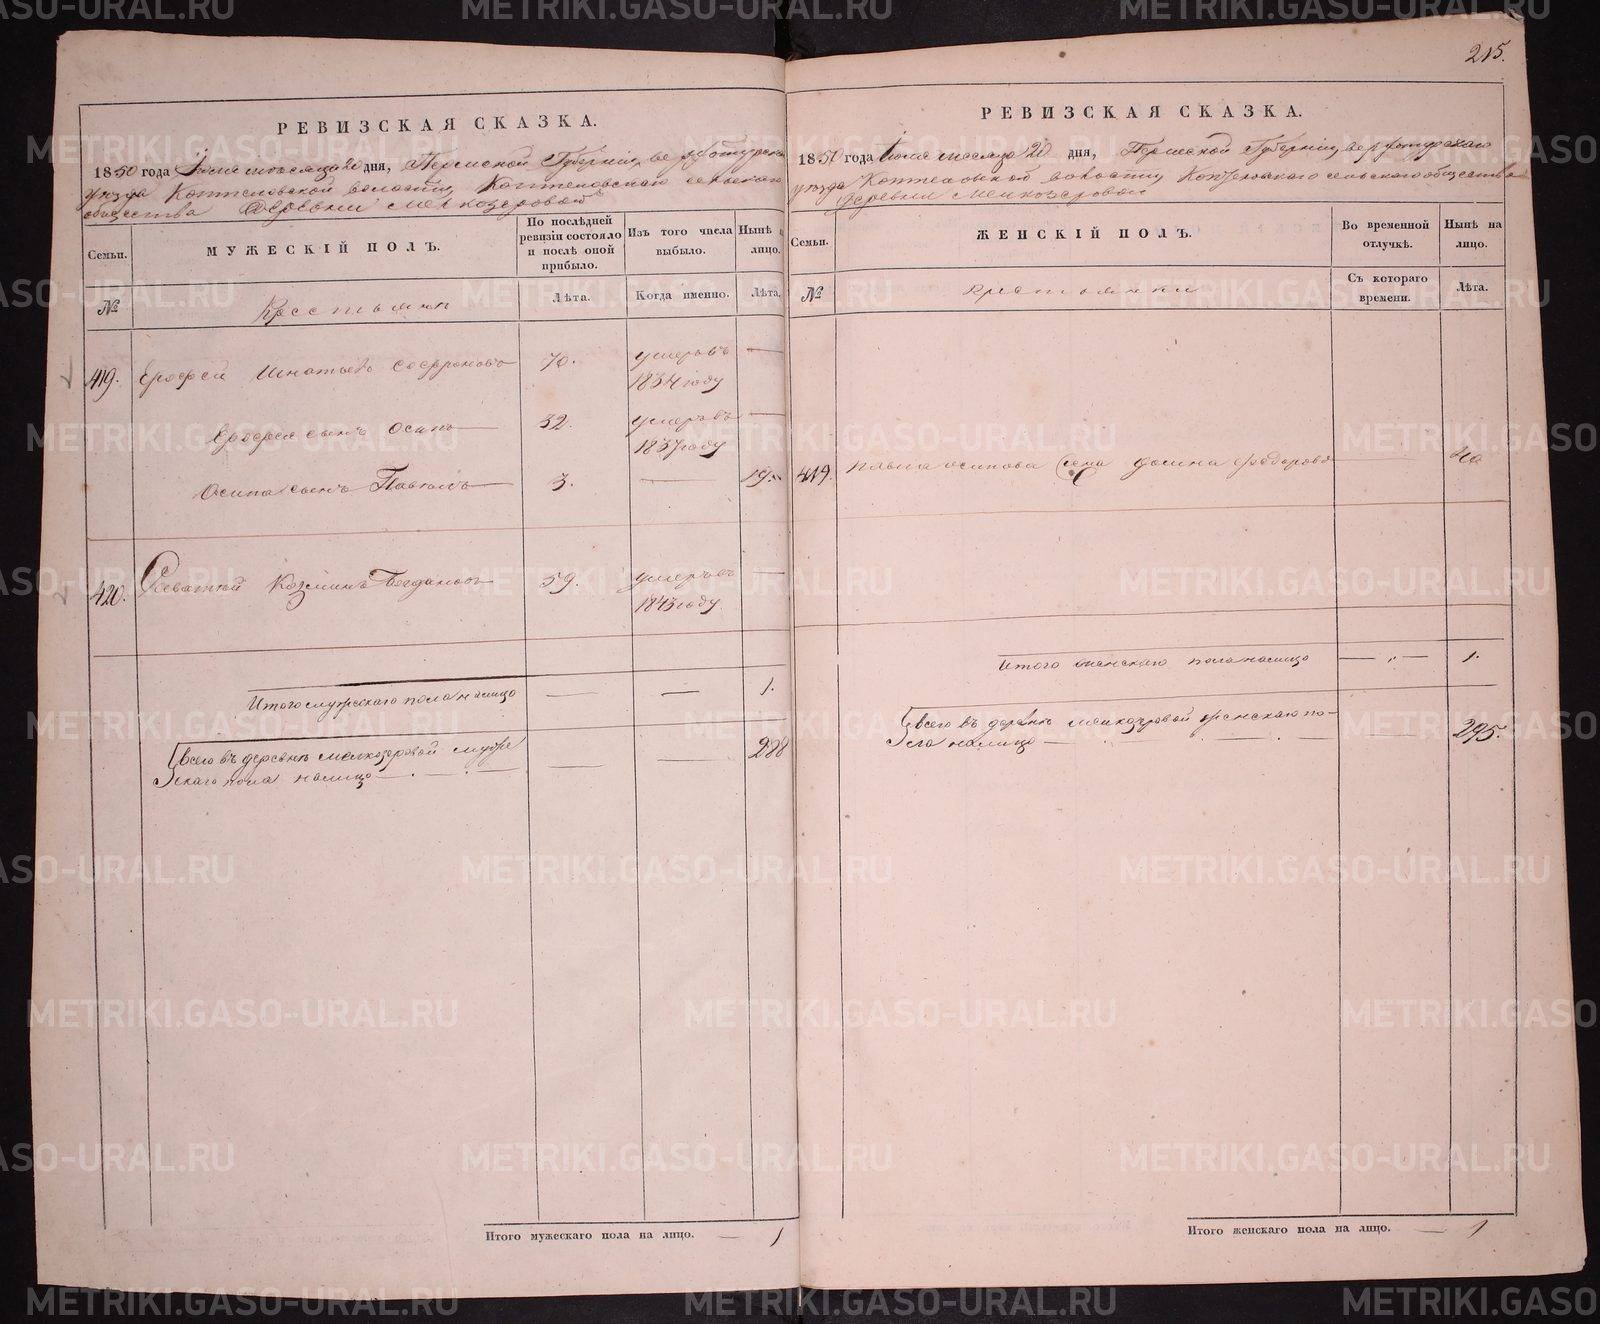 215.
РЕВИЗСКАЯ СКАЗКА.
1850 года Іюля мѣсяца 20 дня, Пермской Губерніи, верхотурскаго
уѣзда Коптеловской волости, Коптеловскаго сельскаго
общества деревни Мелкозеровой
Семьи.
МУЖЕСКІЙ ПОЛЪ.
По послѣдней ревизіи состояло и послѣ оной прибыло.
Изъ того числа выбыло.
Нынѣ на лицо.
№
Крестьянъ
Лѣта.
Когда именно.
Лѣта.
419. Ерофей Игнатьевъ Софроновъ 70. умеръ въ —
1834 году
Ерофея сынъ Осипъ — 32. умеръ въ —
1837 году
Осипа сынъ Павелъ — 3. — 19.
420. Козминъ Богдановъ 59. умеръ въ —
1843 году
Итого мужескаго пола на лицо — — 1.
Всего въ деревнѣ Мелкозеровой муже
скаго пола на лицо — — — 288
Итого мужескаго пола на лицо. — 1
РЕВИЗСКАЯ СКАЗКА.
1850 года Іюля мѣсяца 20 дня, Пермской Губерніи, верхотурскаго
уѣзда Коптеловской волости, Коптеловскаго сельскаго общества
деревни Мелкозеровой
Семьи.
ЖЕНСКІЙ ПОЛЪ.
Во временной отлучкѣ.
Нынѣ на лицо.
№
Крестьянки
Съ котораго времени.
Лѣта.
419. Павла Осипова жена Федорова —
Итого женскаго пола на лицо — „ — 1.
Всего въ деревнѣ Мелкозеровой женскаго по-
ла на лицо — — — 295.
Итого женскаго пола на лицо. — 1
METRIKI.GASO-URAL.RU